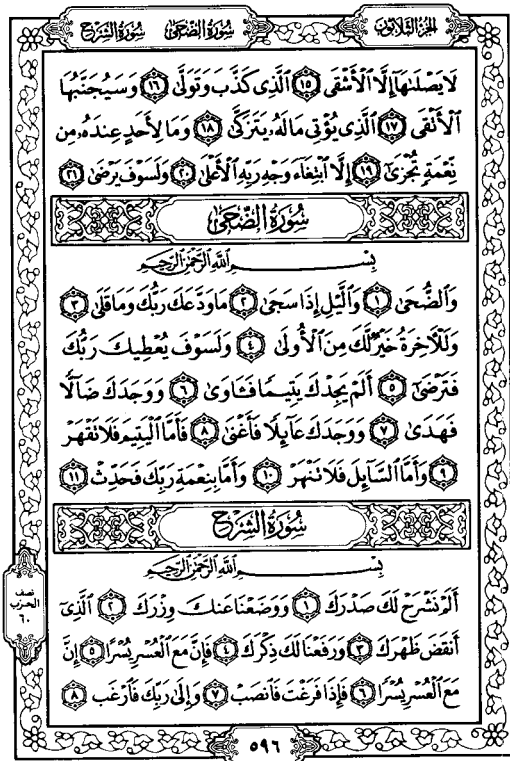 الجزء الثلاثون
سورة الضحى سورة الشرح
لَا يَصْلَىٰهَآ إِلَّا ٱلْأَشْقَى ١٥ ٱلَّذِى كَذَّبَ وَتَوَلَّىٰ ١٦ وَسَيُجَنَّبُهَا
ٱلْأَتْقَى ١٧ ٱلَّذِى يُؤْتِى مَالَهُۥ يَتَزَكَّىٰ ١٨ وَمَا لِأَحَدٍ عِندَهُۥ مِن
نِّعْمَةٍ تُجْزَىٰٓ ١٩ إِلَّا ٱبْتِغَآءَ وَجْهِ رَبِّهِ ٱلْأَعْلَىٰ ٢٠ وَلَسَوْفَ يَرْضَىٰ ٢١
سُورَةُ الضُّحَىٰ
بِسْمِ ٱللَّهِ ٱلرَّحْمَٰنِ ٱلرَّحِيمِ
وَٱلضُّحَىٰ ١ وَٱلَّيْلِ إِذَا سَجَىٰ ٢ مَا وَدَّعَكَ رَبُّكَ وَمَا قَلَىٰ ٣
وَلَلْـَٔاخِرَةُ خَيْرٌ لَّكَ مِنَ ٱلْأُولَىٰ ٤ وَلَسَوْفَ يُعْطِيكَ رَبُّكَ
فَتَرْضَىٰٓ ٥ أَلَمْ يَجِدْكَ يَتِيمًا فَـَٔاوَىٰ ٦ وَوَجَدَكَ ضَآلًّا
فَهَدَىٰ ٧ وَوَجَدَكَ عَآئِلًا فَأَغْنَىٰ ٨ فَأَمَّا ٱلْيَتِيمَ فَلَا تَقْهَرْ
٩ وَأَمَّا ٱلسَّآئِلَ فَلَا تَنْهَرْ ١٠ وَأَمَّا بِنِعْمَةِ رَبِّكَ فَحَدِّثْ ١١
سُورَةُ الشَّرْحِ
بِسْمِ ٱللَّهِ ٱلرَّحْمَٰنِ ٱلرَّحِيمِ
أَلَمْ نَشْرَحْ لَكَ صَدْرَكَ ١ وَوَضَعْنَا عَنكَ وِزْرَكَ ٢ ٱلَّذِىٓ
أَنقَضَ ظَهْرَكَ ٣ وَرَفَعْنَا لَكَ ذِكْرَكَ ٤ فَإِنَّ مَعَ ٱلْعُسْرِ يُسْرًا ٥ إِنَّ
مَعَ ٱلْعُسْرِ يُسْرًا ٦ فَإِذَا فَرَغْتَ فَٱنصَبْ ٧ وَإِلَىٰ رَبِّكَ فَٱرْغَب ٨
نصف
الحزب
٦٠
٥٩٦